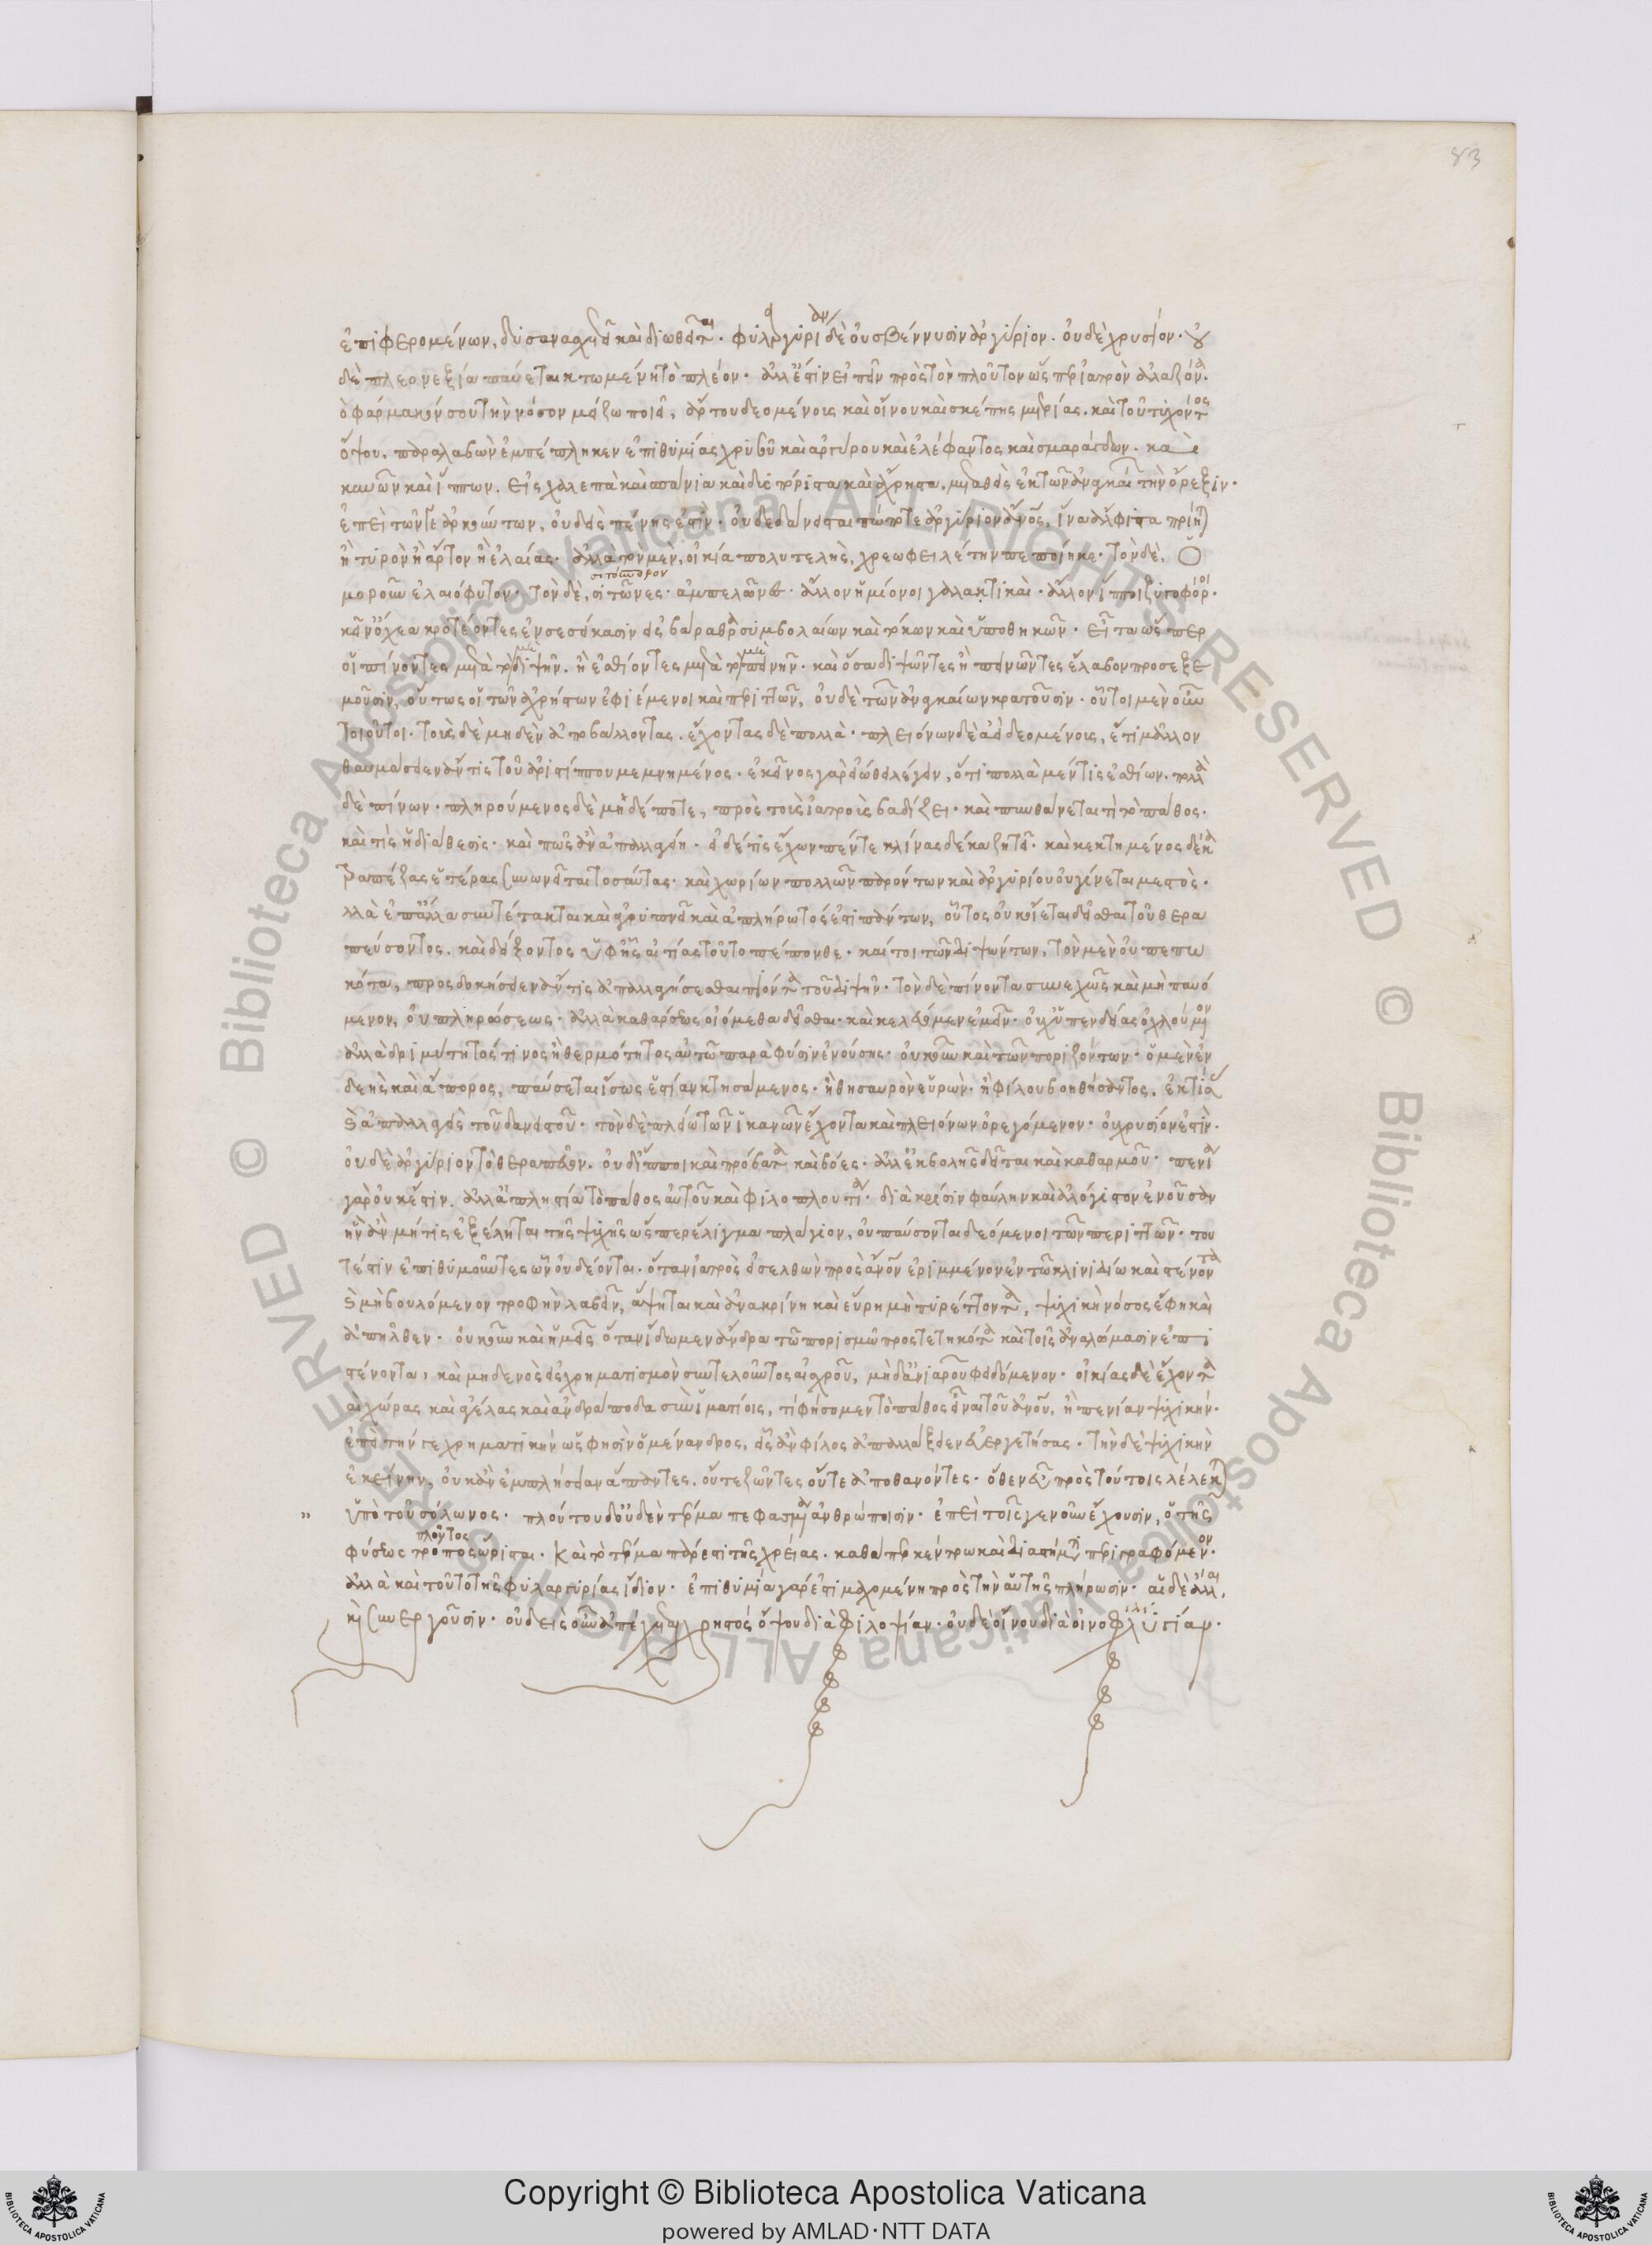 83
ἐπιφερομένων, δυσαναχετεῖ καὶ διωθεῖται· φιλαργυρίαν δὲ οὐ σβέννυσιν ἀργύριον. οὐδὲ χρυσίον· οὐ
δὲ πλεονεξία παύεται κτωμένη τὸ πλέον· ἀλλ' ἔστιν εἰπεῖν πρὸς τὸν πλοῦτον ὥσπερ ἰατρὸν ἀλαζόνα.
ὁ φάρμακόν σου τὴν νόσον μείζω ποιεῖ, ἄρτου δεομένοις καὶ οἴνου καὶ σκέπης μετρίας. καὶ τοῦ τυχόντος
ὄψου. παραλαβὼν ἐμπέπληκεν ἐπιθυμίας χρυσοῦ καὶ ἀργύρου καὶ ἐλέφαντος καὶ σμαράγδων. καὶ
κυνῶν καὶ ἵππων. εἰς χαλεπὰ καὶ σπάνια καὶ δυσπόριστα καὶ ἄχρηστα. μεταθεὶς ἐκ τῶν ἀναγκαίων τὴν ὄρεξιν·
ἐπεὶ τῶν γε ἀρκούντων, οὐδεὶς πένης ἐστίν· οὐδὲ δανείσεται πώποτε ἀργύριον ἄνθρωπος, ἵνα ἄλφιτα πρίηται
ἢ τυρὸν ἢ ἄρτον ἢ ἐλαίας· ἀλλὰ τὸν μὲν, οἰκία πολυτελὴς, χρεωφειλέτην πεποίηκε· τὸν δὲ, ὁ
μοροῦν ἐλαιόφυτον· τὸν δὲ, σιτῶνες· ἀμπελῶνες· ἄλλον ἡμίονοι γαλακτικαὶ· ἄλλον ἵπποι ζυγοφόροι·
κείν' ὄχεα κροτέοντες ἐνσεσείκασιν εἰς βάραθρα συμβολαίων καὶ τόκων καὶ ὑποθηκῶν· εἶτα ὥσπερ
οἱ πίνοντες μετὰ τὸ διψῆν. ἢ ἐσθίοντες μετὰ τὸ πεινῆν. καὶ ὅσα διψῶντες ἢ πεινῶντες ἔλαβον προσεξε
μοῦσιν, οὕτως οἱ τῶν ἀχρήστων ἐφιέμενοι καὶ περιττῶν, οὐδὲ τῶν ἀναγκαίων κρατοῦσιν· οὗτοι μὲν οὖν
τοιοῦτοι. τοὺς δὲ μηδὲν ἀποβάλλοντας. ἔχοντας δὲ πολλὰ· πλειόνων δὲ ἀεὶ δεομένοις, ἔτι μᾶλλον
θαυμάσειεν ἄν τις τοῦ ἀριστίππου μεμνημένος· ἐκεῖνος γὰρ εἰώθει λέγειν, ὅτι πολλὰ μέν τις ἐσθίων. πολλὰ
δὲ πίνων· πληρούμενος δὲ μηδέποτε, πρὸς τοὺς ἰατροὺς βαδίζει· καὶ πυνθάνεται τί τὸ πάθος.
καὶ τίς ἡ διάθεσις· καὶ πῶς ἂν ἀπαλλαγείη· εἰ δέ τις ἔχων πέντε κλίνας δέκα ζητεῖ· καὶ κεκτημένος δέκα
τραπέζας ἑτέρας συνωνεῖται τοσαύτας· καὶ χωρίων πολλῶν παρόντων καὶ ἀργυρίου οὐ γίνεται μεστὸς·
ἀλλὰ ἐπ' ἄλλα συντέτακται καὶ ἀγρυπνεῖ καὶ ἀπλήρωτός ἐστι πάντων, οὗτος οὐκ οἴεται δεῖσθαι τοῦ θερα
πεύσοντος. καὶ δείξοντος ὑφ' ἧς αἰτίας τοῦτο πέπονθε· καίτοι τῶν διψώντων, τὸν μὲν οὐ πεπω
κότα, προσδοκήσειεν ἄν τις ἀπαλλαγήσεσθαι πιόντα τοῦ διψῆν· τὸν δὲ πίνοντα συνεχῶς καὶ μὴ παυό
μενον, οὐ πληρώσεως· ἀλλὰ καθάρσεως οἰόμεθα δεῖσθαι· καὶ κελεύομεν ἐμεῖν· οὐχ ὑπ' ἐνδείας ὀχλούμενον
ἀλλὰ δριμύτητός τινος ἢ θερμότητος αὐτῶ παρὰ φύσιν ἐνούσης· οὐκοῦν καὶ τῶν ποριζόντων· ὁ μὲν ἐν
δεὴς καὶ ἄπορος, παύσεται ἴσως ἑστίαν κτησάμενος· ἢ θησαυρὸν εὑρὼν· ἢ φίλου βοηθήσαντος. ἐκτίσας
καὶ ἀπαλλαγεὶς τοῦ δανειστοῦ· τὸν δὲ πλείω τῶν ἱκανῶν ἔχοντα καὶ πλειόνων ὀρεγόμενον· οὐ χρυσίον ἐστὶν.
οὐδὲ ἀργύριον τὸ θεραπεῦον. οὐδ' ἵπποι καὶ πρόβατα καὶ βόες· ἀλλ' ἐκβολῆς δεῖται καὶ καθαρμοῦ· πενία
γὰρ οὐκ ἔστιν. ἀλλ' ἀπληστία τὸ πάθος αὐτοῦ καὶ φιλοπλουτία· διὰ κρίσιν φαύλην καὶ ἀλόγιστον ἐνοῦσαν
ἣν ἂν μή τις ἐξέληται τῆς ψυχῆς ὥσπερ ἕλιγμα πλάγιον, οὐ παύσονται δεόμενοι τῶν περιττῶν· του
τέστιν ἐπιθυμοῦντες ὧν οὐ δέονται. ὅταν ἰατρὸς εἰσελθὼν πρὸς ἄνθρωπον ἐρριμμένον ἐν τῶ κλινιδίω καὶ στένοντα
καὶ μὴ βουλόμενον τροφὴν λαβεῖν, ἅψηται καὶ ἀνακρίνη καὶ εὕρη μὴ πυρέττοντα, ψυχικὴ νόσος ἔφη καὶ
ἀπῆλθεν· οὐκοῦν καὶ ἡμεῖς ὅταν ἴδωμεν ἄνδρα τῶ πορισμῶ προστετηκότα καὶ τοῖς ἀναλώμασιν ἐπι
στένοντα, καὶ μηδενὸς εἰς χρηματισμὸν συντελοῦντος αἰσχροῦ, μηδ' ἀνιαροῦ φειδόμενον· οἰκίας δὲ ἔχοντα
καὶ χώρας καὶ ἀγέλας καὶ ἀνδράποδα σὺν ἱματίοις, τί φήσομεν τὸ πάθος εἶναι τοῦ ἀνθρώπου, ἢ πενίαν ψυχικήν·
ἐπεὶ τήν γε χρηματικὴν ὥς φησιν ὁ μένανδρος, εἷς ἂν φίλος ἀπαλλάξειεν εὐεργετήσας· τὴν δὲ ψυχικὴν
ἐκείνην, οὐκ ἂν ἐμπλήσειαν ἅπαντες. οὔτε ζῶντες οὔτε ἀποθανόντες· ὅθεν εὖ πρὸς τούτοις λέλεκται
ὑπὸ τοῦ σόλωνος· πλούτου δ' οὐδὲν τέρμα πεφασμένον ἀνθρώποισιν· ἐπεὶ τοῖς γε νοῦν ἔχουσιν, ὁ τῆς
φύσεως πλοῦτος ὥρισται. καὶ τὸ τέρμα πάρεστι τῆς χρείας. καθάπερ κέντρω καὶ διαστήματι περιγραφόμενον·
ἀλλὰ καὶ τοῦτο τῆς φιλαργυρίας ἴδιον· ἐπιθυμία γάρ ἐστι μαχομένη πρὸς τὴν αὑτῆς πλήρωσιν· αἱ δὲ ἄλλαι,
καὶ συνεργοῦσιν· οὐδεὶς οὖν ἀπέχεται χρήσεως ὄψου διὰ φιλοψίαν· οὐδὲ οἴνου διὰ οἰνοφλυγίαν·